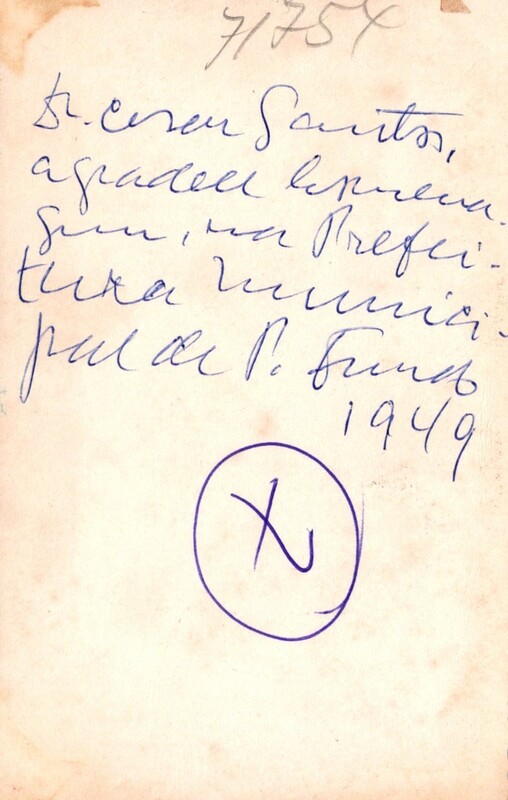 71754
Dr. Cesar Santos,
agradece homena-
gem, na Prefei-
tura Munici-
pal de P. Fundo
1949
X